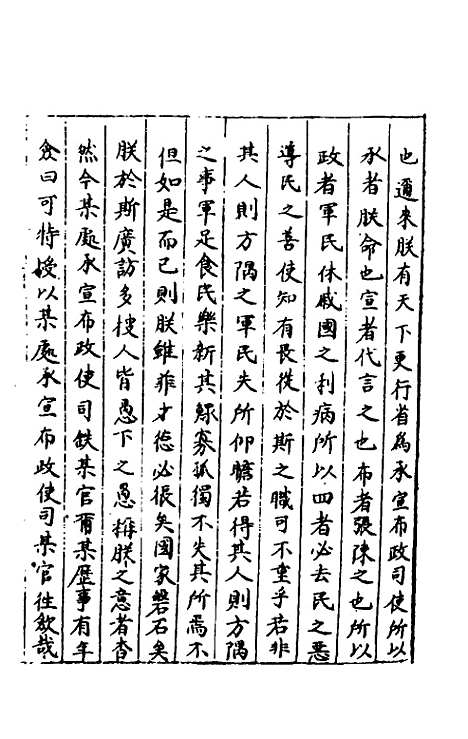 也邇來朕有天下更行省為承宣布政司使所以
承者朕命也宣者代言之也布者張陳之也所以
政者軍民休戚國之利病所以四者必去民之惡
導民之善使知有畏從於斯之職可不重乎若非
其人則方隅之軍民失所仰瞻若得其人則方隅
之事軍足食民樂新其鰥寡孤獨不失其所焉不
但如是而已則朕雖非才德必張矣國家磐石矣
朕於斯廣訪多搜人皆愚下之愚稱朕之意者杳
然今某處承宣布政使司缺某官爾某歷事有年
僉曰可特授以某處承宣布政使司某官往欽哉